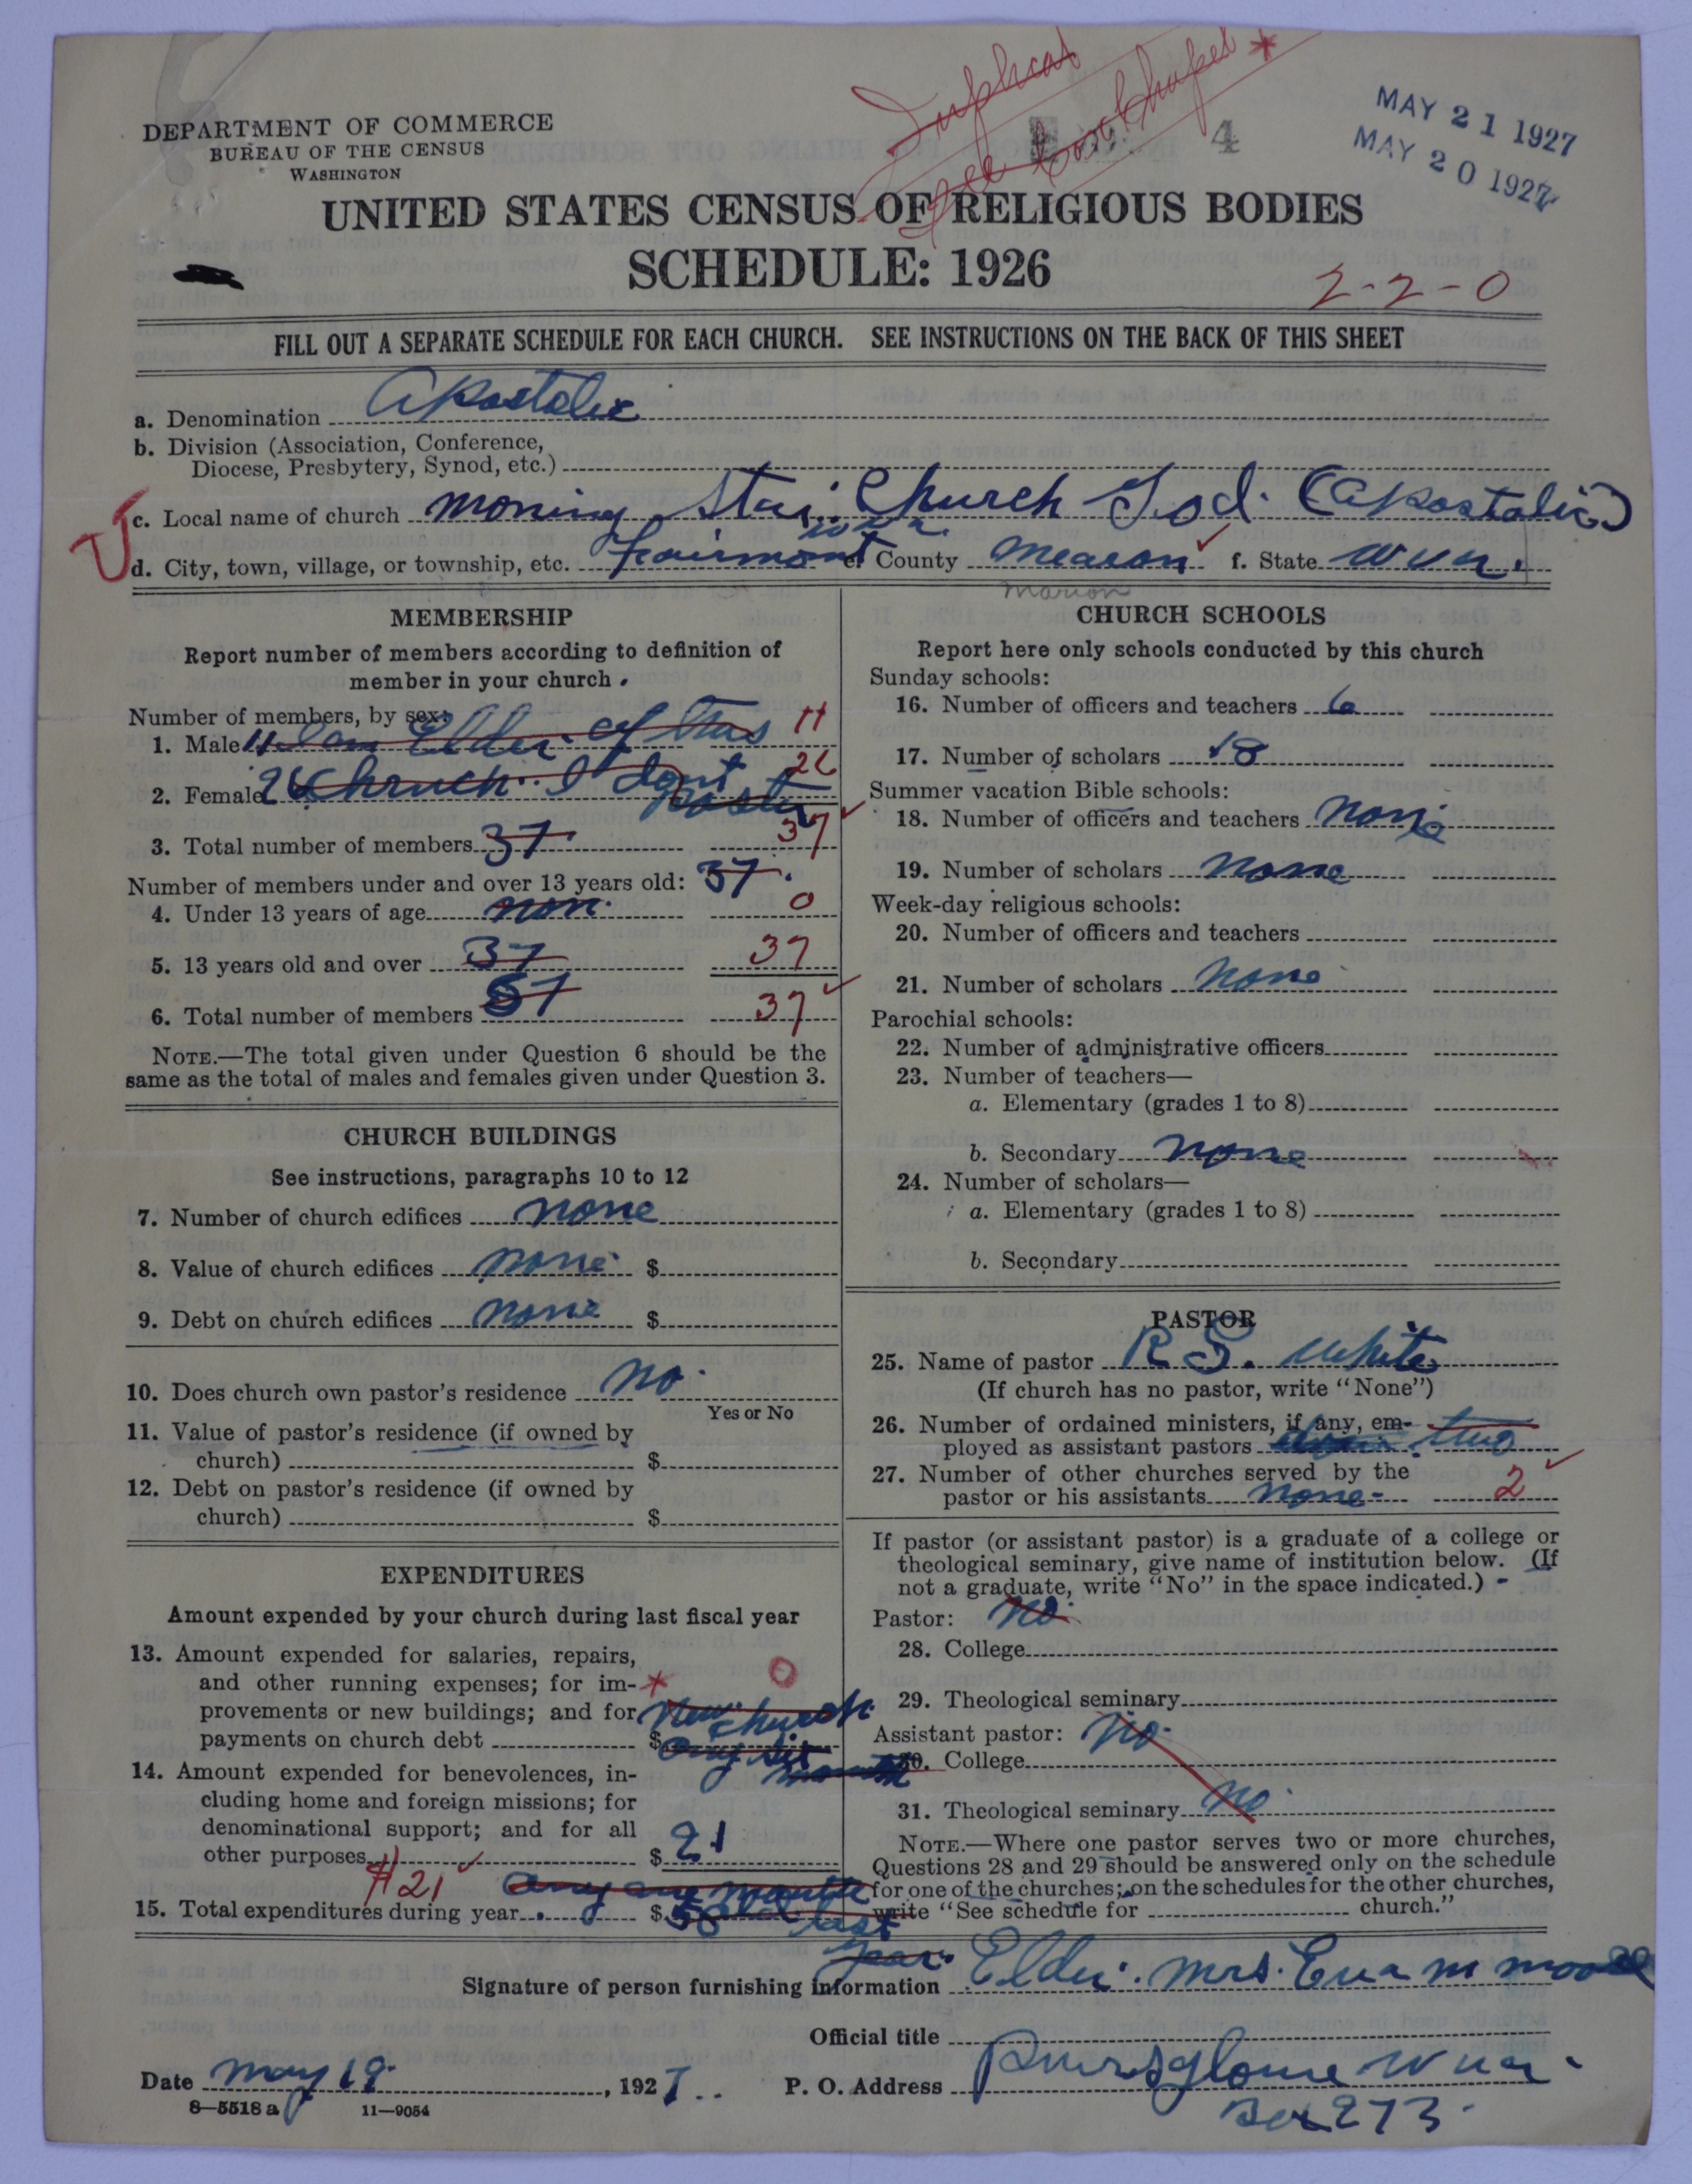 Duplicat
See Coochapel *
4
MAY 21 1927
MAY 20 1927
DEPARTMENT OF COMMERCE
BUREAU OF THE CENSUS
WASHINGTON
UNITED STATES CENSUS OF RELIGIOUS BODIES
SCHEDULE: 1926
2-2-0
FILL OUT A SEPARATE SCHEDULE FOR EACH CHURCH. SEE INSTRUCTIONS ON THE BACK OF THIS SHEET
a. Denomination Apostolic
b. Division (Association, Conference,
Diocese, Presbytery, Synod, etc.)
c. Local name of church Moning Star Church God (Apostolic)
d. City, town, village, or township, etc. Fairmont W.Va. e. County Mearon f. State W Va.
Marion
MEMBERSHIP
Report number of members according to definition of
member in your church.
Number of members, by sex:
1. Male 11 I am Elder of this 11
2. Female 26 Chruch.. I dont 26
pastor
3. Total number of members 37 37
Number of members under and over 13 years old: 37.
4. Under 13 years of age non 0
5. 13 years old and over 37 37
6. Total number of members 37 37
NOTE.—The total given under Question 6 should be the
same as the total of males and females given under Question 3.
CHURCH BUILDINGS
See instructions, paragraphs 10 to 12
7. Number of church edifices none
8. Value of church edifices none $
9. Debt on church edifices none $
10. Does church own pastor's residence no
Yes or No
11. Value of pastor's residence (if owned by
church) $
12. Debt on pastor's residence (if owned by
church) $
EXPENDITURES
Amount expended by your church during last fiscal year
13. Amount expended for salaries, repairs,
and other running expenses; for im- * 0
provements or new buildings; and for New church
payments on church debt $ ony six
month
14. Amount expended for benevolences, in-
cluding home and foreign missions; for
denominational support; and for all
other purposes $ 21
$21
15. Total expenditures during year $
last
year
CHURCH SCHOOLS
Report here only schools conducted by this church
Sunday schools:
16. Number of officers and teachers 6
17. Number of scholars 18
Summer vacation Bible schools:
18. Number of officers and teachers none
19. Number of scholars none
Week-day religious schools:
20. Number of officers and teachers
21. Number of scholars none
Parochial schools:
22. Number of administrative officers
23. Number of teachers—
a. Elementary (grades 1 to 8)
b. Secondary none
24. Number of scholars—
a. Elementary (grades 1 to 8)
b. Secondary
PASTOR
25. Name of pastor R S. White
(If church has no pastor, write "None")
26. Number of ordained ministers, if any, em-
ployed as assistant pastors two
27. Number of other churches served by the
pastor or his assistants none - 2
If pastor (or assistant pastor) is a graduate of a college or
theological seminary, give name of institution below. (If
not a graduate, write "No" in the space indicated.)
Pastor: no
28. College
29. Theological seminary
Assistant pastor: no
30. College
31. Theological seminary no
NOTE.—Where one pastor serves two or more churches,
Questions 28 and 29 should be answered only on the schedule
for one of the churches; on the schedules for the other churches,
write "See schedule for church."
Signature of person furnishing information Elder. Mrs. Eva M Moore
Official title
Date May 19 , 1927
P. O. Address Pursglove W Va.
Box 273
8—5518 a 11—9054